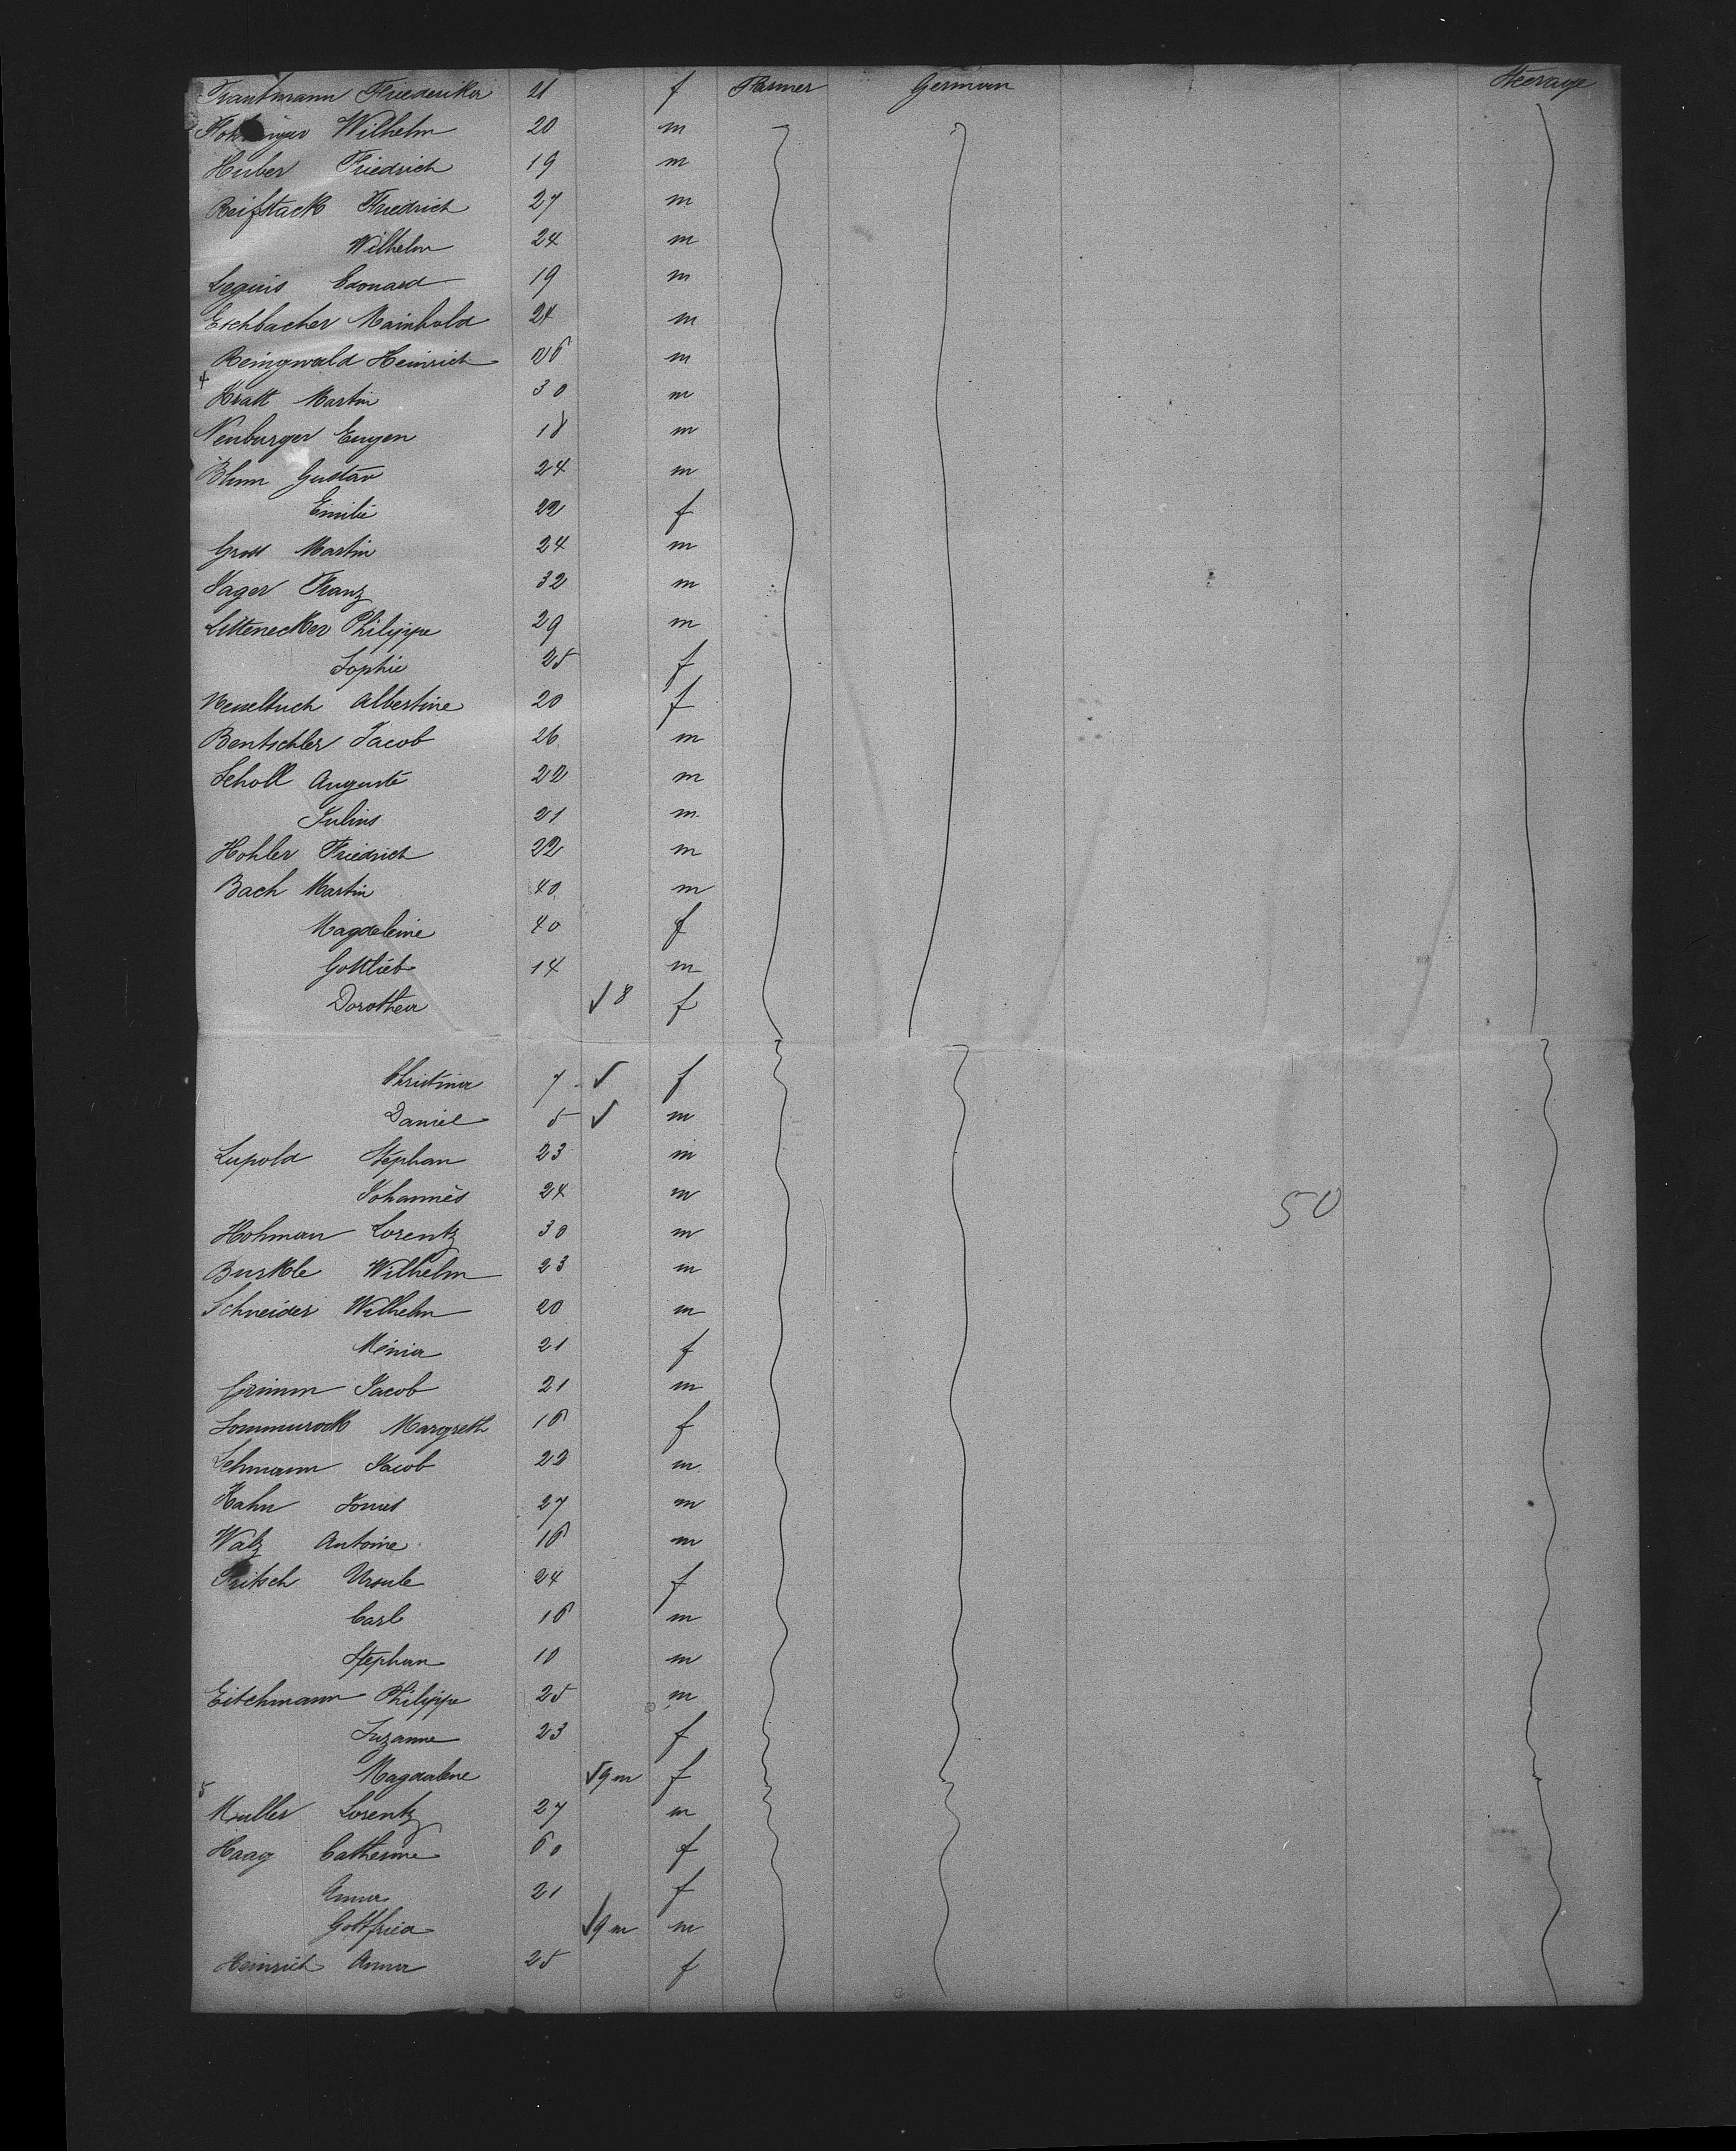 Trautmann Friederika 21 f Farmer German Steerage
Wilhelm 20 m
Huber Friedrich 19 m
Reifstack Friedrich 27 m
Wilhelm 24 m
Leguis Edouard 19 m
Eschbacher Mainhold 24 m
Reingwald Heinrich 26 m
4
Kratt Martin 30 m
Neuburger Eugen 18 m
Blum Gustav 24 m
Emilie 22 f
Gross Martin 24 m
Jager Franz 32 m
Littenecker Philippe 29 m
Sophie 25 f
Albertine 20 f
Bentschler Jacob 26 m
Scholl Auguste 22 m
Julius 21 m
Hohler Friedrich 22 m
Bach Martin 40 m
Magdeleine 40 f
Gottlieb 14 m
Dorothea √ 8 f
Christina 7 √ f
Daniel 5 √ m
Lupold Stephan 23 m
Johannes 24 m
50
Hohman Lorentz 30 m
Burkle Wilhelm 23 m
Schneider Wilhelm 20 m
Minia 21 f
Grimm Jacob 21 m
Sommurock Margreth 16 f
Lehmann Jacob 22 m
Kahn Louis 27 m
Walz Antoine 16 m
Fritsch Ursule 24 f
Carl 16 m
Stephan 10 m
Eitchmann Philippe 25 m
Suzanne 23 f
Magdalene √ 9 m f
5
Muller Lorentz 27 m
Haag Catherine 60 f
Anna 21 f
Gottfried √ 9 m m
Heinrich Anna 25 f